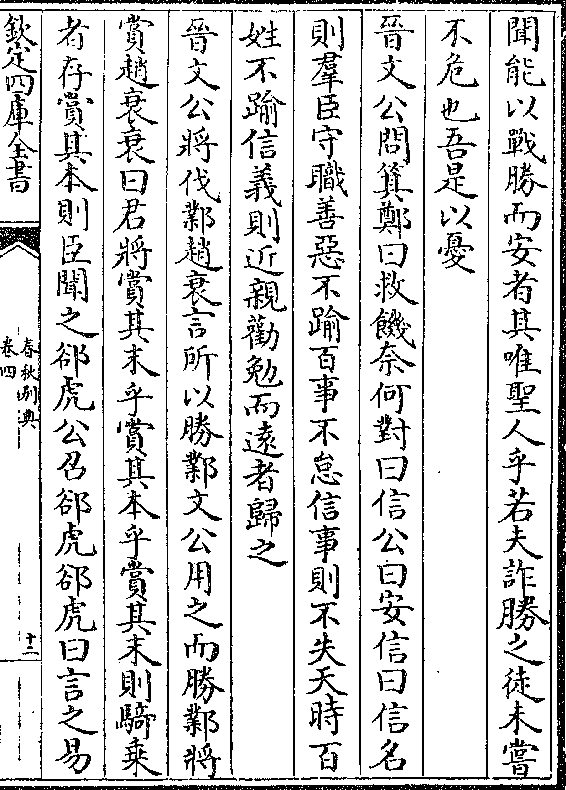 聞能以戰勝而安者其唯聖人乎若夫詐勝之徒未嘗
不危也吾是以憂
晉文公問箕鄭曰救饑奈何對曰信公曰安信曰信名
則羣臣守職善惡不踰百事不怠信事則不失天時百
姓不踰信義則近親勸勉而遠者歸之
晉文公將伐鄴趙衰言所以勝鄴文公用之而勝鄴將
賞趙衰衰曰君將賞其末乎賞其本乎賞其末則騎乗
者存賞其本則臣聞之郤虎公召郤虎郤虎曰言之易
欽定四庫全書
春秋別典
卷四
十二